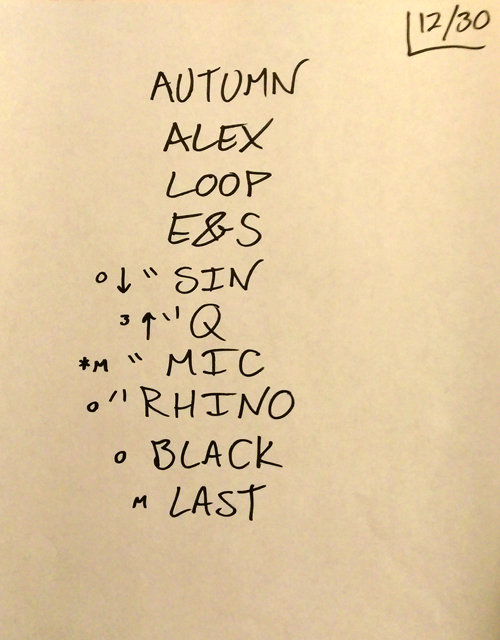 12/30
AUTUMN
ALEX
LOOP
E&S
o ↓ " SIN
3 ↑ " Q
*M " MIC
o " RHINO
o BLACK
M LAST